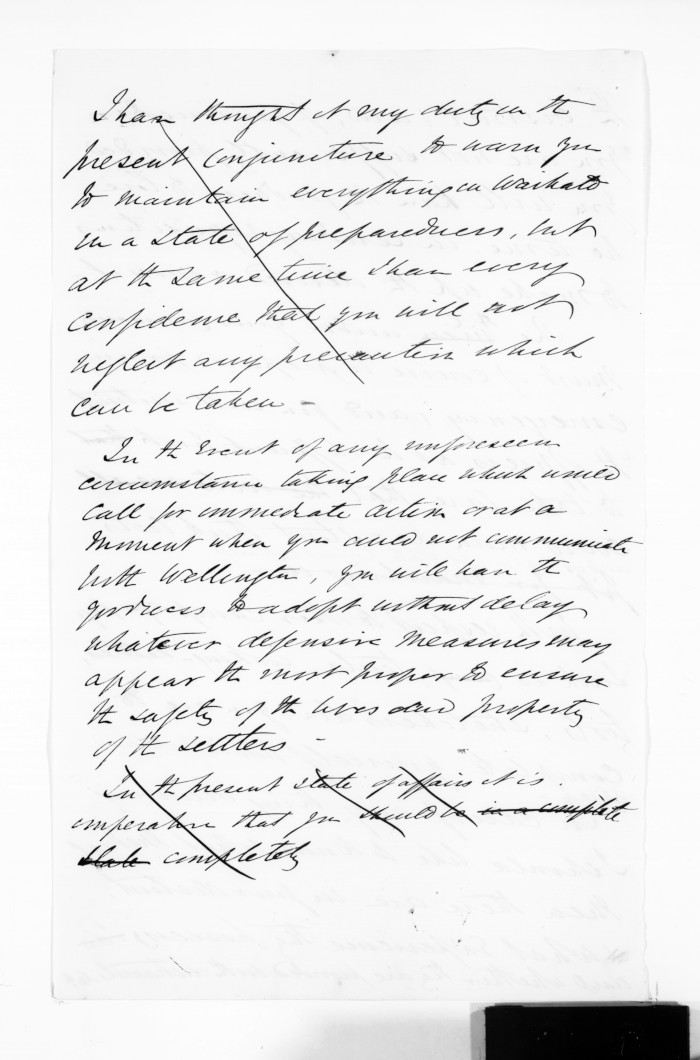 I have thought it my duty in the
present conjuncture to warn you
to maintain everything in Waikato
in a state of preparedness, but
at the same time I have every
confidence that you will not
neglect any precaution which
can be taken –
In the event of any unforeseen
circumstance taking place which would
call for immediate action or at a
moment when you could not communicate
with Wellington, you will have the
goodness to adopt without delay
whatever defensive measures may
appear the most proper to ensure
the safety of the lives and property
of the settlers –
In the present state of affairs it is
imperative that you should be in a complete
state completely